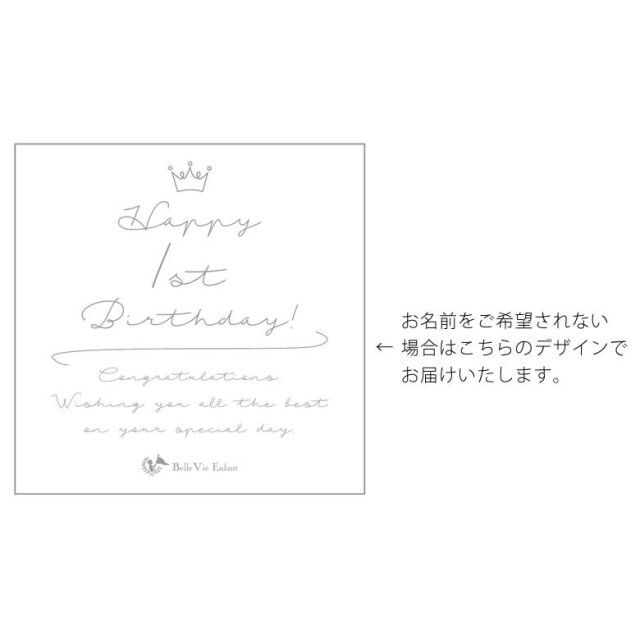 Happy
1st
Birthday!
Congratulations.
Wishing you all the best
on your special day.
Belle Vie Enfant
お名前をご希望されない
← 場合はこちらのデザインで
お届けいたします。